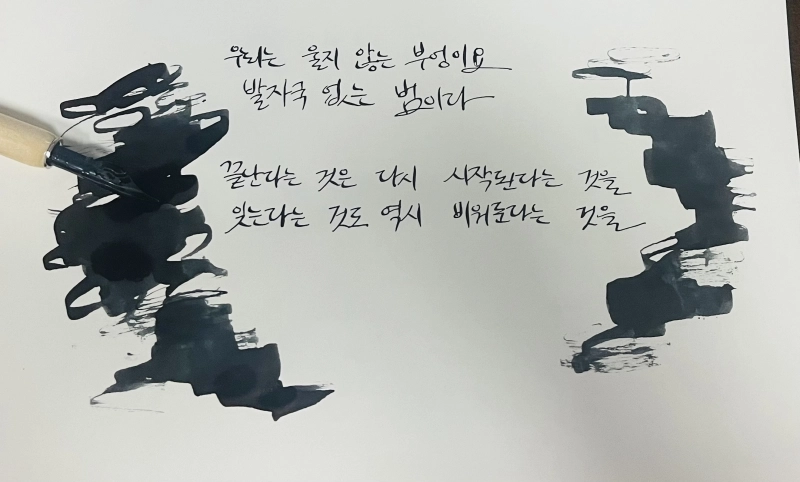 우리는 울지 않는 부엉이요
발자국 없는 범이라
끝난다는 것은 다시 시작된다는 것을
잊는다는 것도 역시 비워둔다는 것을